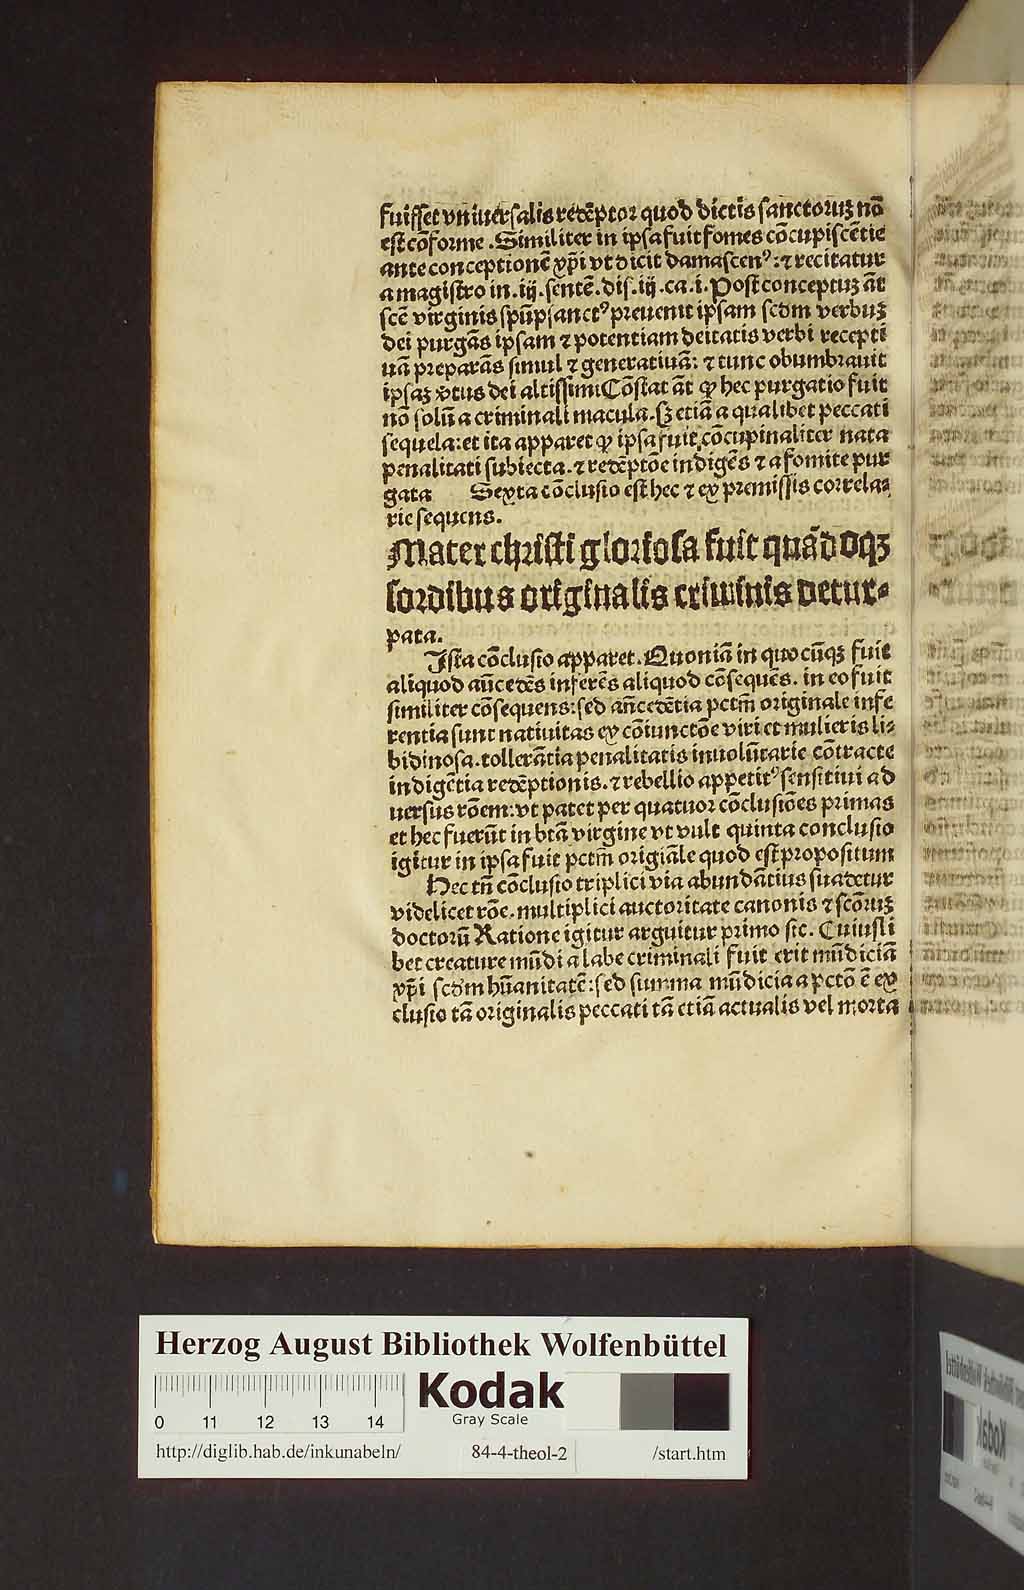 fuisset vniuersalis redēptor quod dictis sanctoruꝫ nō
est cōforme. Similiter in ipsa fuit fomes cōcupiscētie
ante conceptionē xp̄i vt dicit damascenꝰ: ⁊ recitatur
a magistro in. iij. sentē. dis. iij. ca. i. Post conceptuꝫ āt
scē virginis sp̄us sanctꝰ preuenit ipsam scd̄m verbuꝫ
dei purgās ipsam ⁊ potentiam deitatis verbi recepti
uā preparās simul ⁊ generatiuā: ⁊ tunc obumbrauit
ipsaꝫ v̄tus dei altissimi Cōstat āt ꝙ hec purgatio fuit
nō solū a criminali macula. sꝫ etiā a qualibet peccati
sequela: et ita apparet ꝙ ipsa fuit cōcupinaliter nata
penalitati subiecta. ⁊ redēptōe indigēs ⁊ a fomite pur
gata Sexta cōclusio est hec ⁊ ex premissis correla⸗
rie sequens.
Mater christi gloriosa fuit quādoqꝫ
sordibus originalis criminis detur⸗
pata.
Ista cōclusio apparet. Quoniā in quocūqꝫ fuit
aliquod an̄cedēs inferēs aliquod cōsequēs. in eo fuit
similiter cōsequens: sed an̄cedētia pctm̄ originale infe
rentia sunt natiuitas ex cōiunctōe viri et mulieris li⸗
bidinosa. tollerātia penalitatis inuolūtarie cōtracte
indigētia redēptionis. ⁊ rebellio appetitꝰ sensitiui ad
uersus rōem: vt patet per quatuor cōclusiōes primas
et hec fuerūt in btā virgine vt vult quinta conclusio
igitur in ipsa fuit pctm̄ origiāle quod est propositum
Hec tn̄ cōclusio triplici via abundātius suadetur
videlicet rōe. multiplici auctoritate canonis ⁊ scōruꝫ
doctorū Ratione igitur arguitur primo sic. Cuiusli
bet creature mūdi a labe criminali fuit erit mūdiciā
xp̄i scd̄m hūanitatē: sed summa mūdicia a pctō ē ex
clusio tā originalis peccati tā etiā actualis vel morta
Herzog August Bibliothek Wolfenbüttel
0 11 12 13 14
Kodak
Gray Scale
http://diglib.hab.de/inkunabeln/ 84-4-theol-2 /start.htm